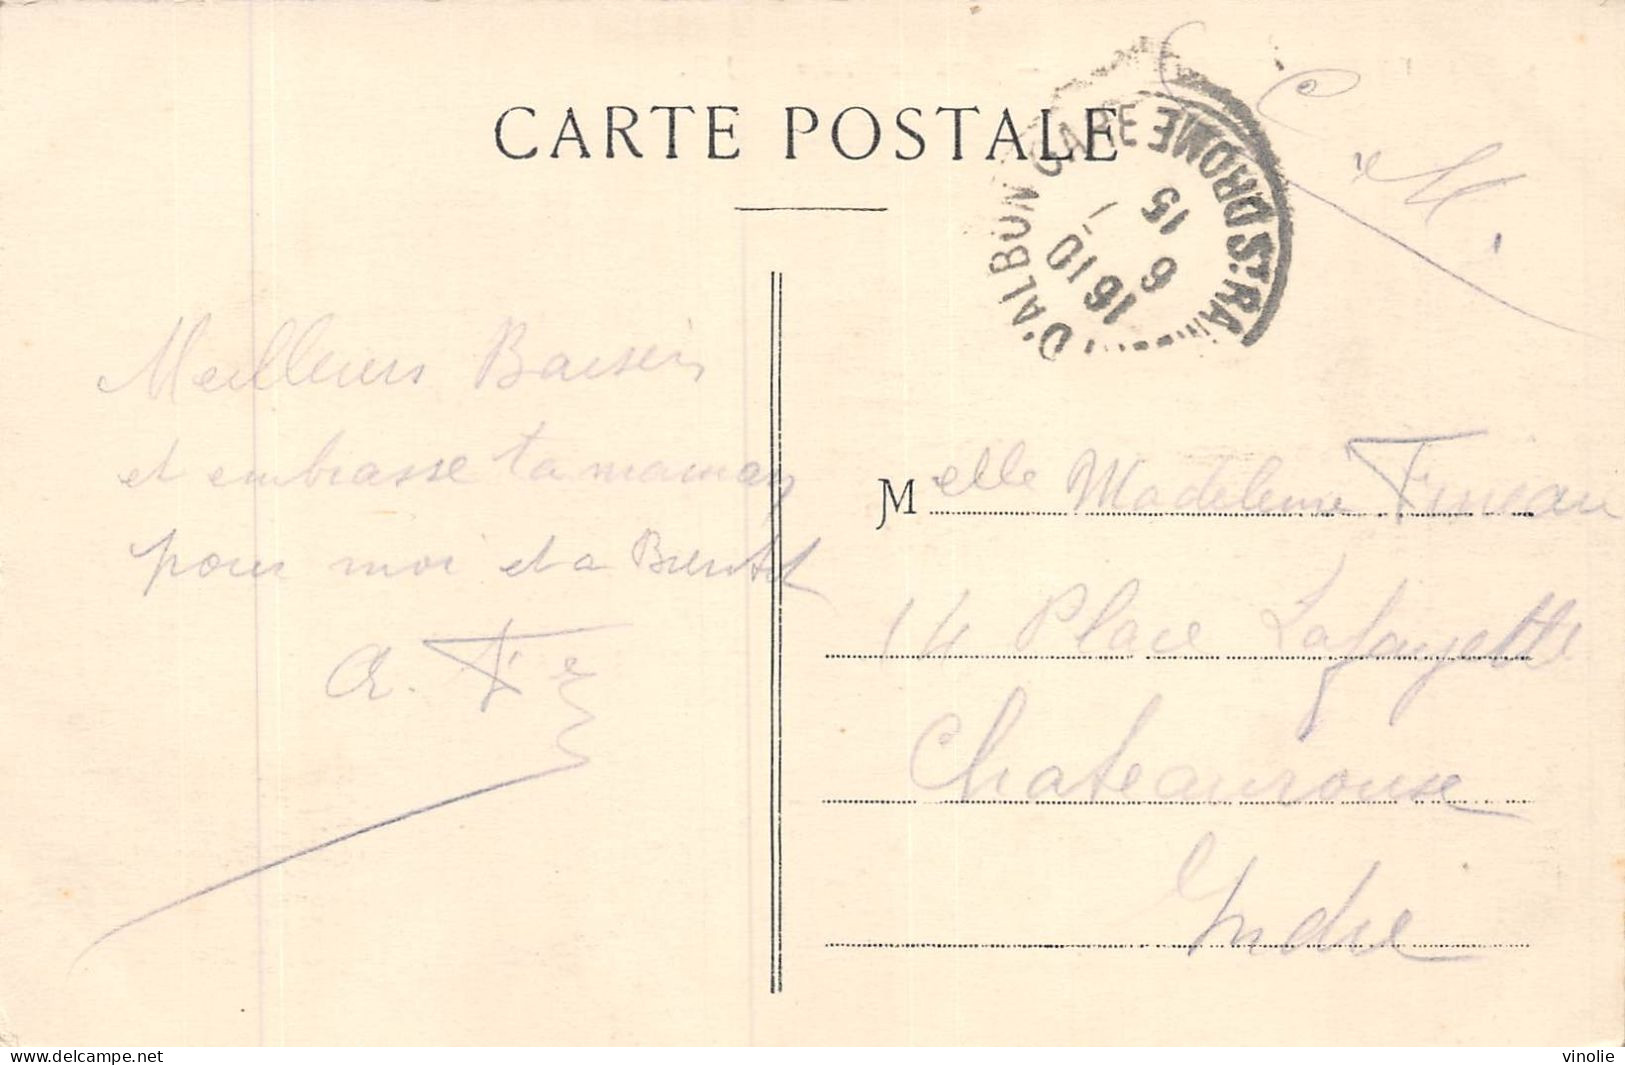 CARTE POSTALE
C. M.
ST RA D'ALBON GARE DROME
16 10
6
15
Meilleurs Baisers
et embrasse ta maman
pour moi et a Bientot
A. F
Melle Madeleine
14 Place Lafayette
Chateauroux
Indre
www.delcampe.net
vinolie